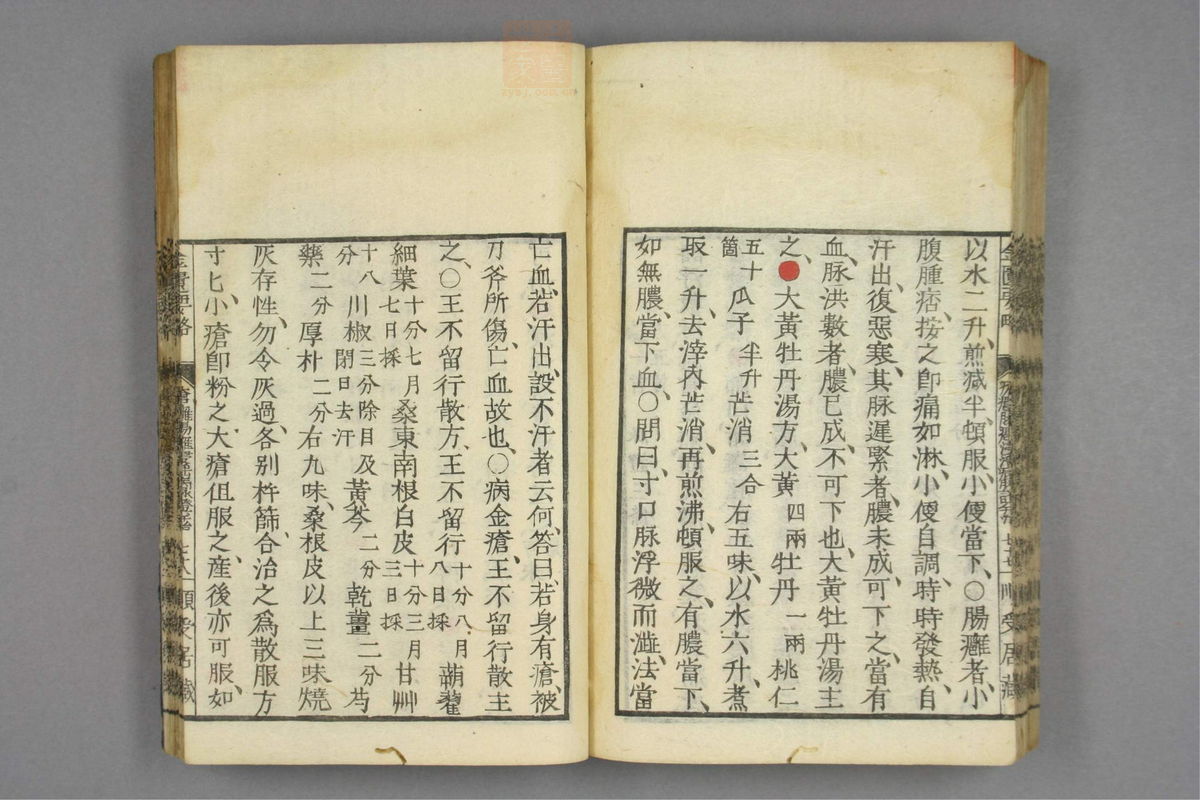 以水二升、煎減半、頓服、小便當下、〇腸癰者、小
腹腫痞、按之卽痛如淋、小便自調、時時發熱、自
汗出、復惡寒、其脉遲緊者、膿未成、可下之、當有
血、脉洪數者、膿已成、不可下也、大黃牡丹湯主
之、大黃牡丹湯方、大黃四兩牡丹一兩桃仁
五十箇瓜子半升芒消三合右五味、以水六升、煮
取一升、去滓、內芒消、再煎沸、頓服之、有膿當下、
如無膿、當下血、〇問曰、寸口脉浮微而澁、法當
亡血、若汗出、設不汗者云何、荅曰、若身有瘡、被
刀斧所傷、亡血故也、〇病金瘡、王不留行散主
之、〇王不留行散方、王不留行十分八月八日採蒴藋
細葉十分七月七日採桑東南根白皮十分三月三日採甘艸
十八分川椒三分除目及閉口去汗黃芩二分乾薑二分芍
藥二分厚朴二分右九味、桑根皮以上三味燒
灰存性、勿令灰過、各別杵篩、合治之爲散、服方
寸匕、小瘡卽粉之、大瘡但服之、產後亦可服、如
金匱要略
七十八
順受居藏